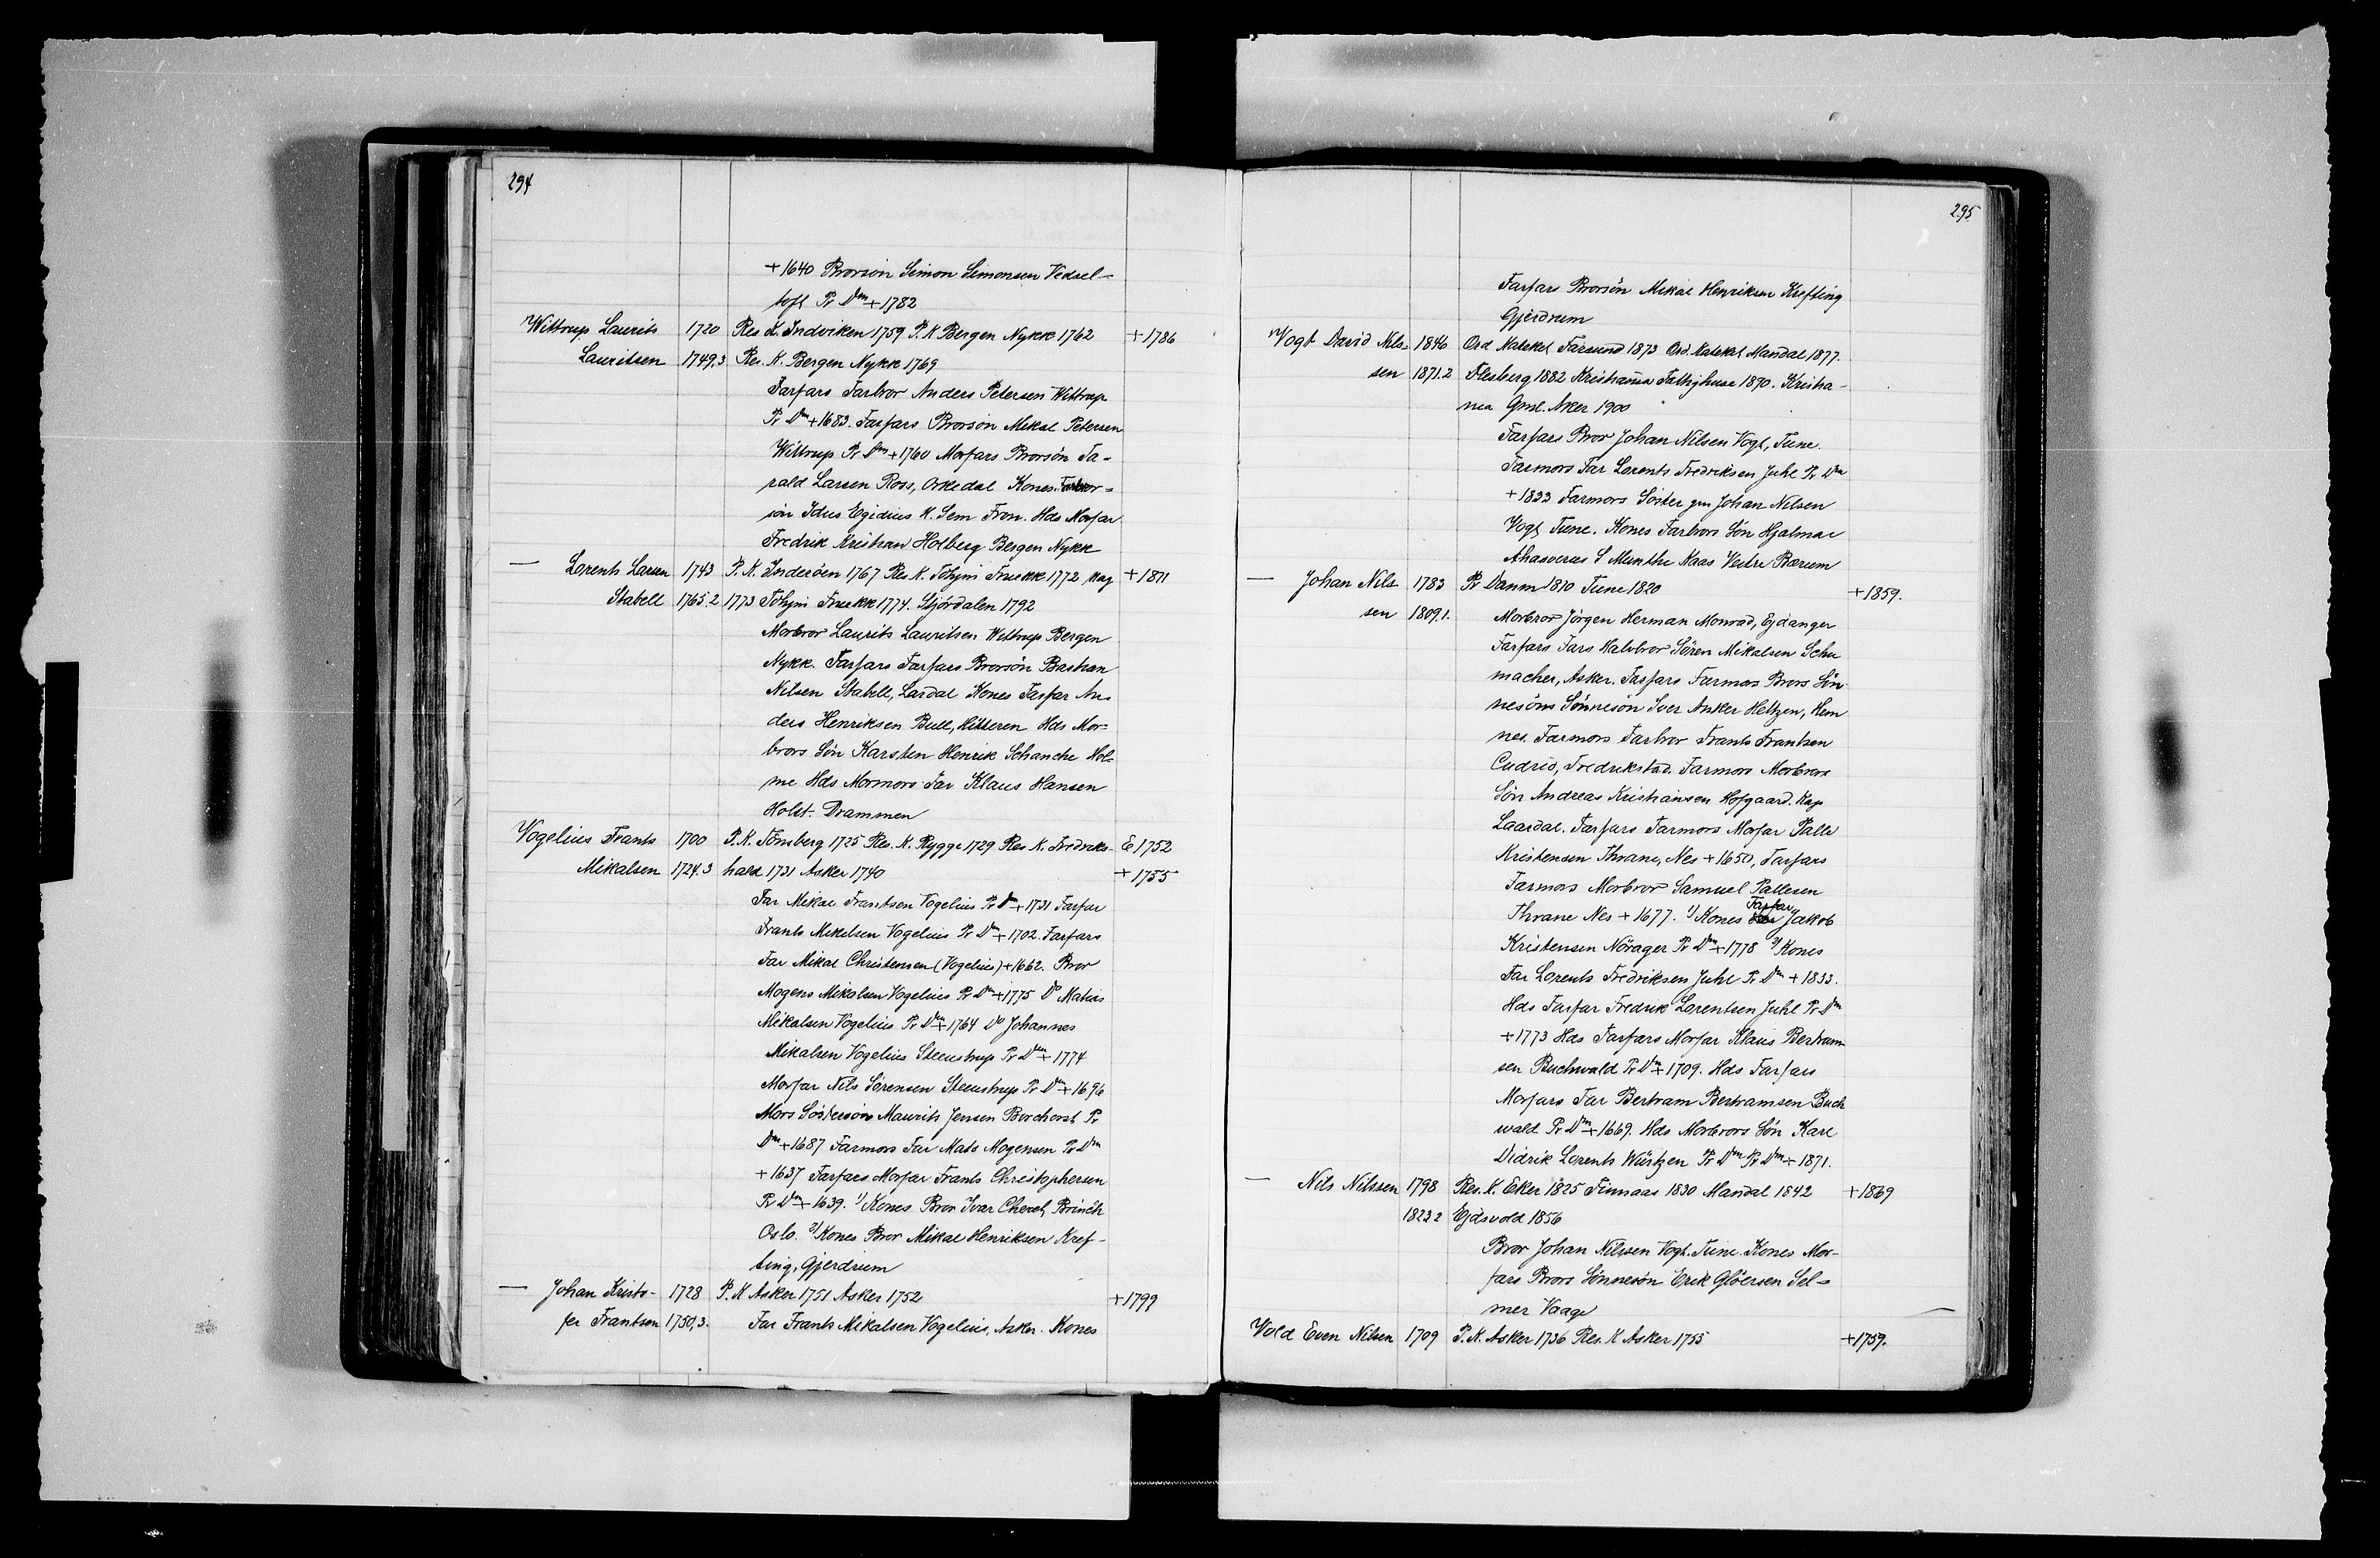 294
+ 1640 Brorsön Simon Simonsen Vedsel-
toft Pr Dm + 1782
Wittrup Laurits 1720 Res K. Indviken 1759 P. K Bergen Nykk 1762 + 1786
Lauritsen 1749,3 Res. K. Bergen Nykk 1769
Farfars Farbror Anders Petersen Wittrup
Pr Dm + 1683. Farfars Brorsön Mikal Petersen
Wittrup Pr Dm + 1760 Morfars Brorsön Ta-
rald Larsen Ross, Orkedal Kones Farbror-
sön Idus Egidius K. Sem Fron. Hds Morfar
Fredrik Kristian Holberg Bergen Nykk
— Lorents Larsen 1743 P. K. Inderöen 1767 Res K. Tthjm Fruekk 1772 Kag + 1811
Stabell 1765.2 1773 Tthjm Fruekk 1774. Stjördalen 1792
Morbror Laurits Lauritsen Wittrup Bergen
Nykk. Farfars Farfars Brorsön Bastian
Nilsen Stabell, Lardal Kones Farfar An-
ders Henriksen Bull, Hitteren Hds Mor-
brors Sön Karsten Henrik Schanche Hol-
me Hds Mormors Far Klaus Hansen
Holst. Drammen
Vogelius Frants 1700 P. K. Tönsberg 1725 Res. K. Rygge 1729 Res K. Fredriks- E 1752
Mikalsen 1724.3 hald 1731 Asker 1740 + 1755
Far Mikal Frantsen Vogelius Pr Dm + 1731 Farfar
Frants Mikelsen Vogelius Pr Dm + 1702. Farfars
Far Mikal Christensen (Vogelius) + 1662. Bror
Mogens Mikalsen Vogelius Pr Dm + 1775 Do Matias
Mikalsen Vogelius Pr Dm + 1764 Do Johannes
Mikalsen Vogelius Steenstrup Pr Dm + 1774
Morfar Nils Sörensen Steenstrup Pr Dm + 1696
Mors Söstersön Maurits Jensen Borchorst Pr
Dm + 1687 Farmors Far Mads Mogensen Pr Dm
+ 1637 Farfars Morfar Frants Christophersen
Pr Dm + 1639. 1) Kones Bror Ivar Brinch
Oslo. 2) Kones Bror Mikal Henriksen Kref-
ting, Gjerdrum
— Johan Kristo- 1728 P. K Asker 1751 Asker 1752 + 1799
fer Frantsen 1750,3. Far Frants Mikalsen Vogelius, Asker. Kones
295
Farfars Brorsön Mikal Henriksen Krefting
Gjerdrum
Vogt David Nils- 1846 Ord Katekel Farsund 1873 Ord. Katekel Mandal 1877.
sen 1871.2 Flesberg 1882 Kristiania Fattighuse 1890. Kristia-
nia Gml. Aker 1900
Farfars Bror Johan Nilsen Vogt, Tune.
Farmors Far Lorents Fredriksen Juhl Pr Dm
+ 1833 Farmors Söster gm Johan Nilsen
Vogt Tune. Kones Farbrors Sön Hjalmar
Ahasverus S Munthe Kaas Vestre Bærum
— Johan Nils 1783 Pr Danm 1810 Tune 1820 + 1859.
sen 1809,1. Morbror Jörgen Herman Monrad, Ejdanger
Farfars Fars Halvbror Sören Mikalsen Schu
macher, Asker. Farfars Farmors Brors Sön-
nesöns Sönnesön Iver Anker Heltzen, Hem
nes. Farmors Farbror Frants Frantsen
Cudrio, Fredrikstad. Farmors Morbrors
Sön Andreas Kristiansen Hofgaard. Kap
Laardal. Farfars Farmors Morfar Palle
Kristensen Thrane, Nes + 1650, Farfars
Farmors Morbror Samuel Pallesen
Thrane Nes + 1677. 1) Kones Farfar Jakob
Kristensen Nörager Pr Dm + 1778 2) Kones
Far Lorents Fredriksen Juhl Pr Dm + 1833.
Hds Farfar Fredrik Lorentsen Juhl Pr Dm
+ 1773 Hds Farfars Morfar Klaus Bertram
sen Buchwald Pr Dm + 1709. Hds Farfars
Morfars Far Bertram Bertramsen Buch
wald Pr Dm + 1669. Hds Morbrors Sön Karl
Didrik Lorents Würtzen Pr Dm Pr Dm + 1871.
— Nils Nilssen 1798 Res. K. Eker 1825 Finnaas 1830 Mandal 1842 + 1869
1823 2 Ejdsvold 1856
Bror Johan Nilssen Vogt. Tune. Kones Mor-
fars Brors Sönnesön Erik Glöersen Sel-
mer Vaage
Vold Even Nilsen 1709 P. K. Asker 1736 Res. K Asker 1755 + 1759.